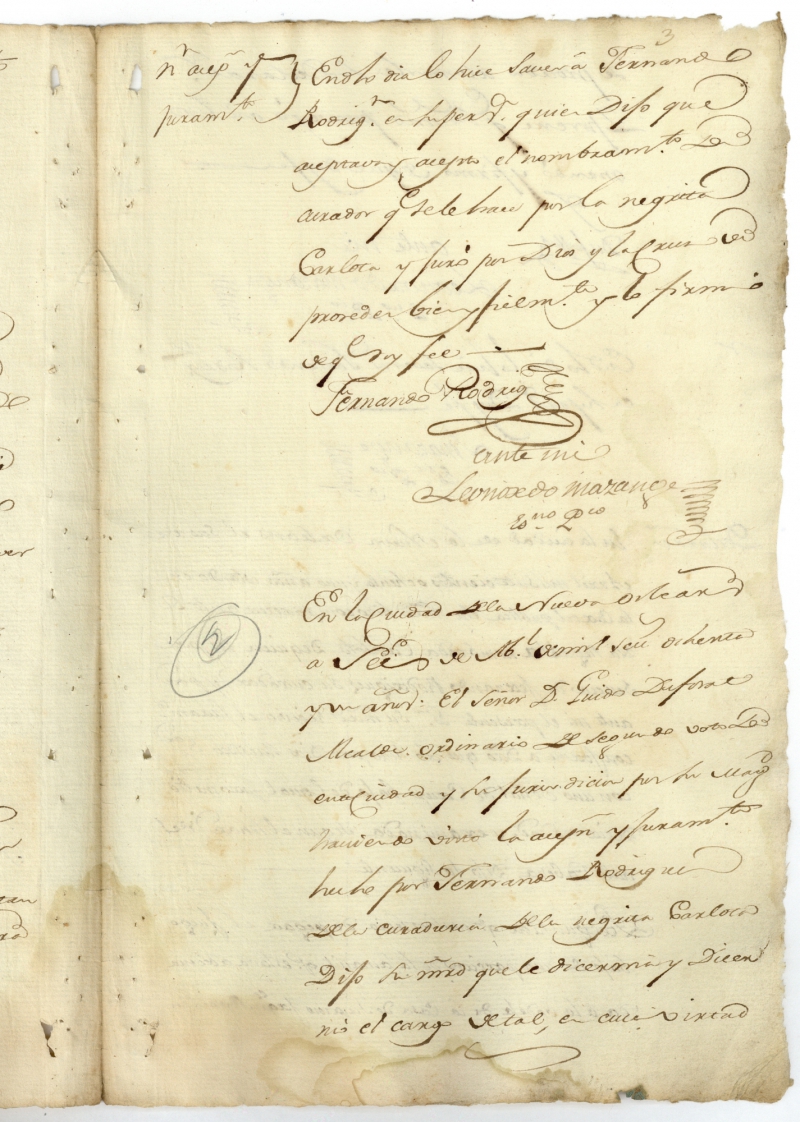 3
nn acepn y
juramto
En dho dia lo hice saver a Fernando
Rodrigz en su persa quien Dijo que
aceptava y acepto el nombramto de
curador qe se le hace por la negrita
Carlota y juró por Dios y la Cruz de
proceder bien y fielmte y lo firmó
de qe doy fee
Fernando Rodrigz
ante mi
Leonardo Mazange
Esno Pco
2
En la Ciudad de la Nueva Orleans
a de Abl de mil setz ochenta
y un años. El Señor Dn Guido Dufosat
Alcalde ordinario de segundo voto de
esta Ciudad y su jurisdicion por su Magd
haviendo visto la acepn y juramto
hecho por Fernando Rodriguez
de la curaduria de la negrita Carlota
Dijo su mrd que le dicernia y Dicer
nio el cargo de tal, en cuia virtud